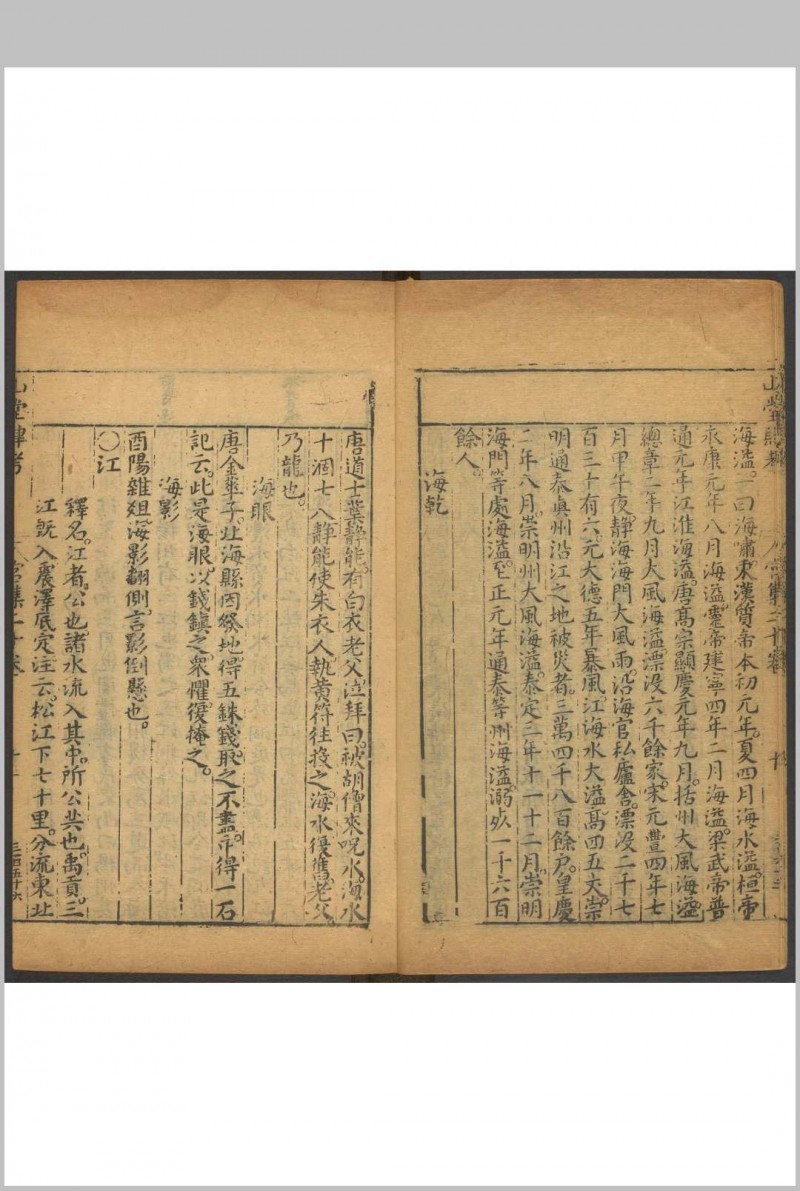 海溢。一曰海嘯東漢質帝本初元年。夏四月海水溢。桓帝
永康元年八月海溢靈帝建寧四年二月海溢。梁武帝普
通元年江淮海溢。唐高宗顯慶元年九月。括州大風海溢
總章二年九月大風海溢漂没六千餘家。宋元豐四年七
月甲午夜。静海海門大風雨。沿海官私廬舍。漂没二千七
百三十有六元大德五年暴風江海水大溢高四五丈。崇
明通泰真州沿江之地被災者。三萬四千八百餘户。皇慶
二年八月。崇明州大風海溢。泰定三年十一十二月。崇明
海門等處海溢。至正元年通泰等州海溢。溺死一千六百
餘人。
海乾
唐道士葉静能。有白衣老父泣拜曰。被胡僧來呪水。海水
十涸七八静能使朱衣人執黄符往投之。海水復舊。老父
乃龍也。
海眼
唐金華子。北海縣因發地。得五銖錢。取之不盡。中得一石
記云。此是海眼。以錢鎮之衆懼復掩之。
海影
酉陽雜俎。海影翻側。言影倒懸也。
〇江
釋名。江者。公也。諸水流入其中。所公共也。禹貢。三
江既入震澤底定注云。松江下七十里。分流東北
山堂肆考
三百五十六